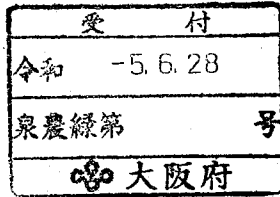 受付
令和 -5.6.28
泉農緑第 号
大阪府